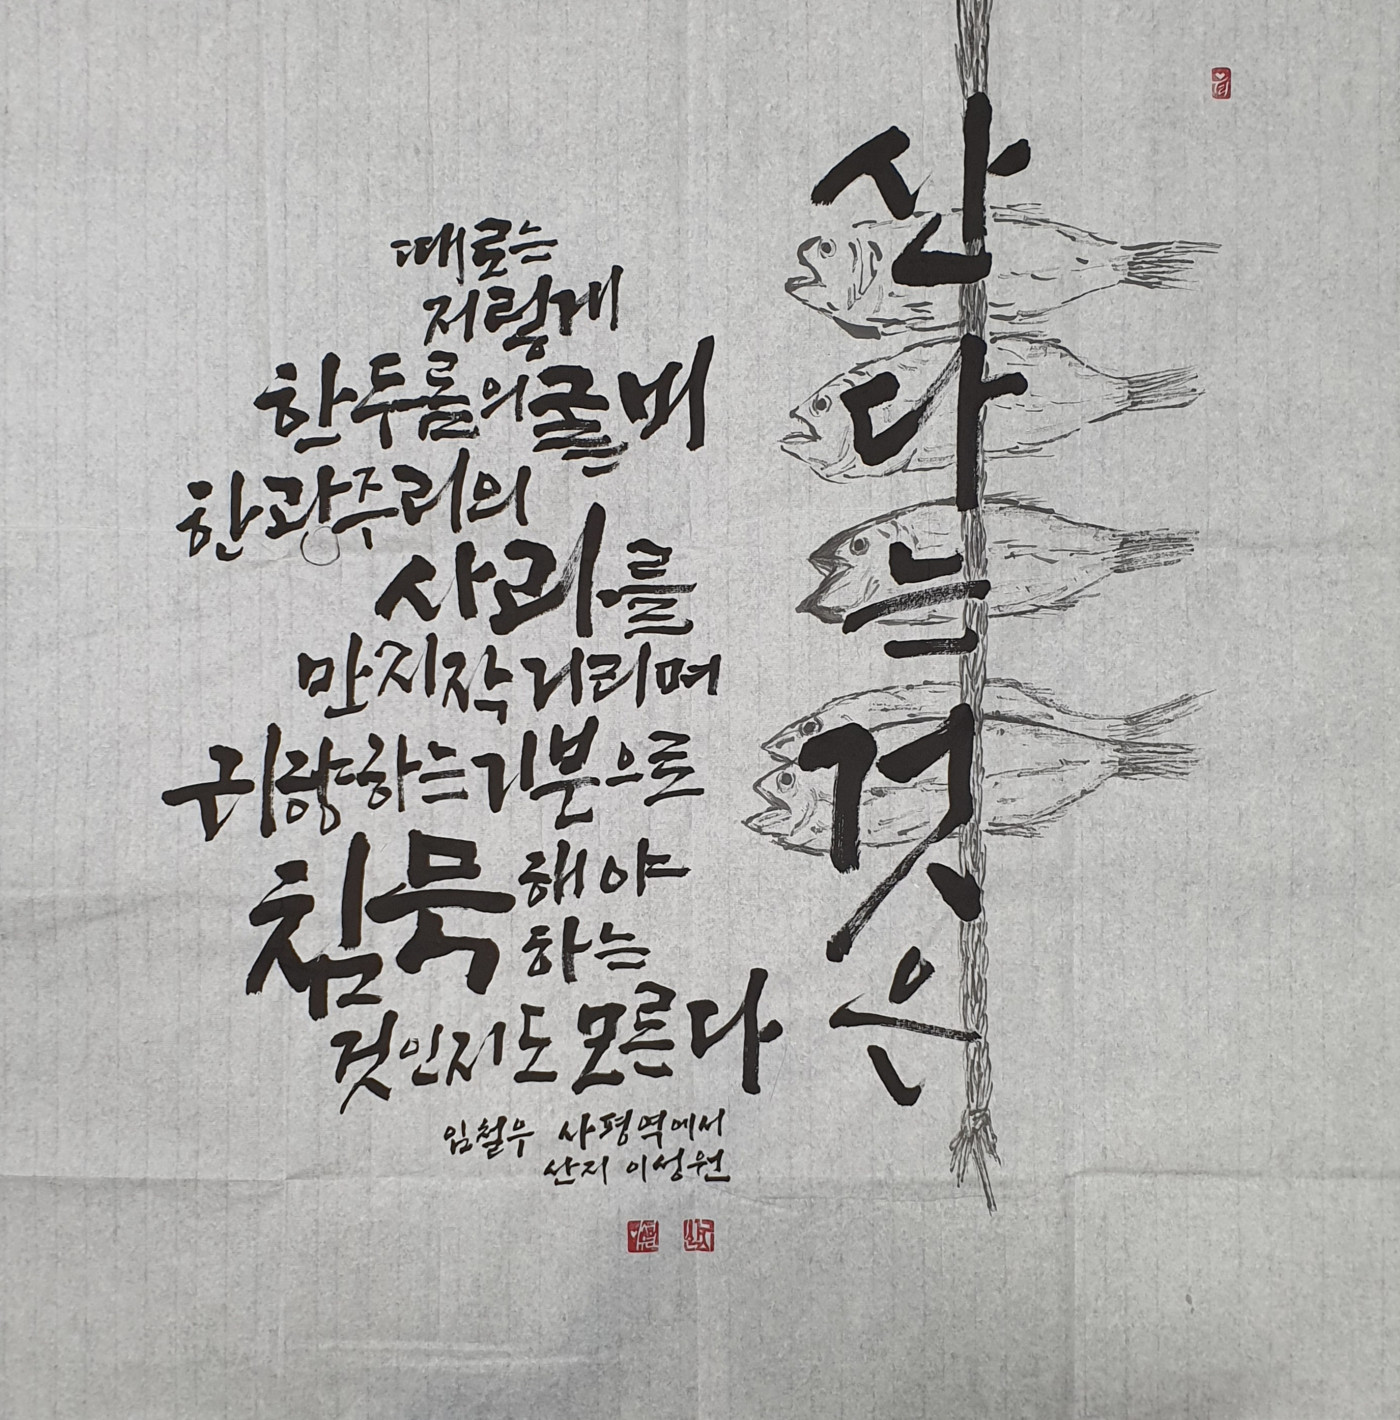 산다는 것은
때로는
저렇게
한 두름의 굴비
한 광주리의
사과를
만지작거리며
귀향하는 기분으로
침묵해야
하는
것인지도 모른다
임철우 사평역에서
산지 이성원